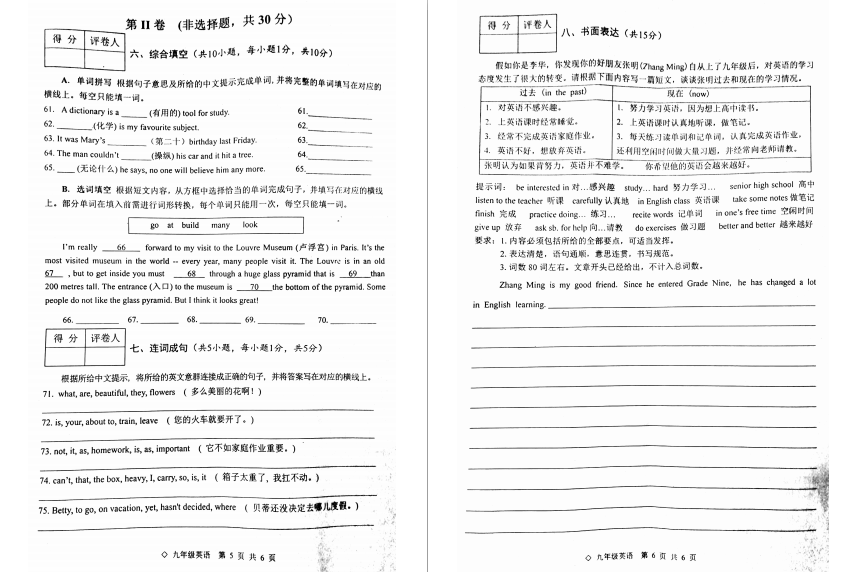 第 II 卷 (非选择题，共 30 分)
得 分 评卷人
六、综合填空（共10小题，每小题1分，共10分）
A. 单词拼写 根据句子意思及所给的中文提示完成单词，并将完整的单词填写在对应的
横线上。每空只能填一词。
61. A dictionary is a ______ (有用的) tool for study. 61.
62. ________(化学) is my favourite subject. 62.
63. It was Mary's ________ （第二十）birthday last Friday. 63.
64. The man couldn't ______(操纵) his car and it hit a tree. 64.
65. ____ (无论什么) he says, no one will believe him any more. 65.
B. 选词填空 根据短文内容，从方框中选择恰当的单词完成句子，并填写在对应的横线
上。部分单词在填入前需进行词形转换，每个单词只能用一次，每空只能填一词。
go at build many look
I'm really 66 forward to my visit to the Louvre Museum (卢浮宫) in Paris. It's the
most visited museum in the world -- every year, many people visit it. The Louvre is in an old
67 , but to get inside you must 68 through a huge glass pyramid that is 69 than
200 metres tall. The entrance (入口) to the museum is 70 the bottom of the pyramid. Some
people do not like the glass pyramid. But I think it looks great!
66. 67. 68. 69. 70.
得 分 评卷人
七、连词成句（共5小题，每小题1分，共5分）
根据所给中文提示，将所给的英文意群连接成正确的句子，并将答案写在对应的横线上。
71. what, are, beautiful, they, flowers （ 多么美丽的花啊！）
72. is, your, about to, train, leave （ 您的火车就要开了。）
73. not, it, as, homework, is, as, important （ 它不如家庭作业重要。）
74. can't, that, the box, heavy, I, carry, so, is, it （ 箱子太重了，我扛不动。）
75. Betty, to go, on vacation, yet, hasn't decided, where （ 贝蒂还没决定去哪儿度假。）
◇ 九年级英语 第 5 页 共 6 页
得 分 评卷人
八、书面表达（共15分）
假如你是李华，你发现你的好朋友张明(Zhang Ming)自从上了九年级后，对英语的学习
态度发生了很大的转变。请根据下面内容写一篇短文，谈谈张明过去和现在的学习情况。
过去（in the past） 现在（now）
1. 对英语不感兴趣。 1. 努力学习英语，因为想上高中读书。
2. 上英语课时经常睡觉。 2. 上英语课时认真地听课，做笔记。
3. 经常不完成英语家庭作业。 3. 每天练习读单词和记单词，认真完成英语作业。
4. 英语不好，想放弃英语。 还利用空闲时间做大量习题，并经常向老师请教。
张明认为如果肯努力，英语并不难学。 你希望他的英语会越来越好。
提示词： be interested in 对…感兴趣 study… hard 努力学习… senior high school 高中
listen to the teacher 听课 carefully 认真地 in English class 英语课 take some notes 做笔记
finish 完成 practice doing… 练习… recite words 记单词 in one's free time 空闲时间
give up 放弃 ask sb. for help 向…请教 do exercises 做习题 better and better 越来越好
要求：1. 内容必须包括所给的全部要点，可适当发挥。
2. 表达清楚，语句通顺，意思连贯，书写规范。
3. 词数 80 词左右。文章开头已经给出，不计入总词数。
Zhang Ming is my good friend. Since he entered Grade Nine, he has changed a lot
in English learning.
◇ 九年级英语 第 6 页 共 6 页